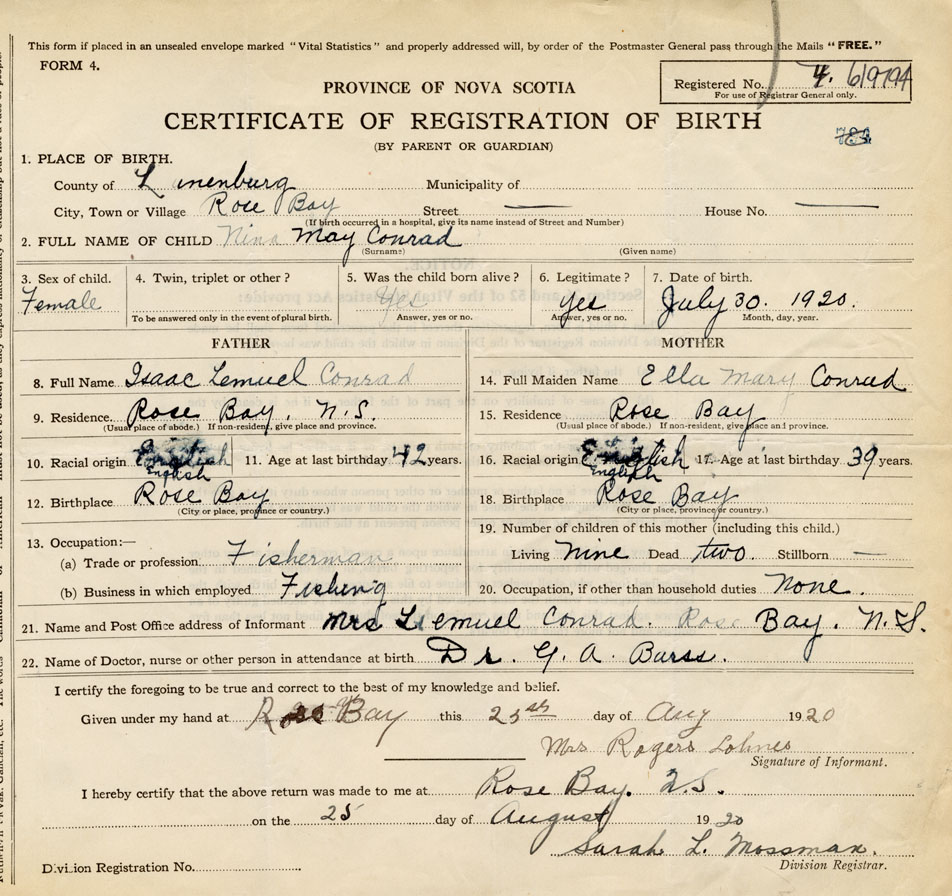 This form if placed in an unsealed envelope marked "Vital Statistics" and properly addressed will, by order of the Postmaster General pass through the Mails "FREE."
FORM 4.
Registered No. 4. 619794
For use of Registrar General only.
PROVINCE OF NOVA SCOTIA
CERTIFICATE OF REGISTRATION OF BIRTH
(BY PARENT OR GUARDIAN)
1. PLACE OF BIRTH.
County of Lunenburg Municipality of
City, Town or Village Rose Bay Street — House No. —
(If birth occurred in a hospital, give its name instead of Street and Number)
2. FULL NAME OF CHILD Nina May Conrad
(Surname) (Given name)
3. Sex of child. Female
4. Twin, triplet or other?
To be answered only in the event of plural birth.
5. Was the child born alive? Yes
Answer, yes or no.
6. Legitimate? Yes
Answer, yes or no.
7. Date of birth. July 30. 1920.
Month, day, year.
FATHER
8. Full Name Isaac Lemuel Conrad
9. Residence. Rose Bay. N.S.
(Usual place of abode.) If non-resident, give place and province.
10. Racial origin English 11. Age at last birthday 42 years.
12. Birthplace Rose Bay
(City or place, province or country.)
13. Occupation:—
(a) Trade or profession. Fisherman
(b) Business in which employed Fishing
MOTHER
14. Full Maiden Name Ella Mary Conrad
15. Residence Rose Bay
(Usual place of abode.) If non-resident, give place and province.
16. Racial origin English 17. Age at last birthday 39 years.
18. Birthplace Rose Bay
(City or place, province or country.)
19. Number of children of this mother (including this child.)
Living Nine Dead two. Stillborn —
20. Occupation, if other than household duties None.
21. Name and Post Office address of Informant Mrs Lemuel Conrad. Rose Bay. N.S.
22. Name of Doctor, nurse or other person in attendance at birth Dr. G. A. Burss.
I certify the foregoing to be true and correct to the best of my knowledge and belief.
Given under my hand at Rose Bay this 25th day of Aug 1920
Mrs Rogers Lohnes
Signature of Informant.
I hereby certify that the above return was made to me at Rose Bay. N.S.
on the 25 day of August 1920
Sarah L. Mossman.
Division Registrar.
Division Registration No.